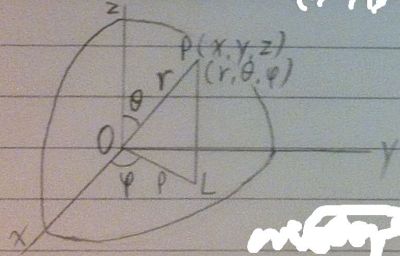 z
P(x,y,z)
(r,θ,φ)
r
θ
O
y
φ
ρ
L
x